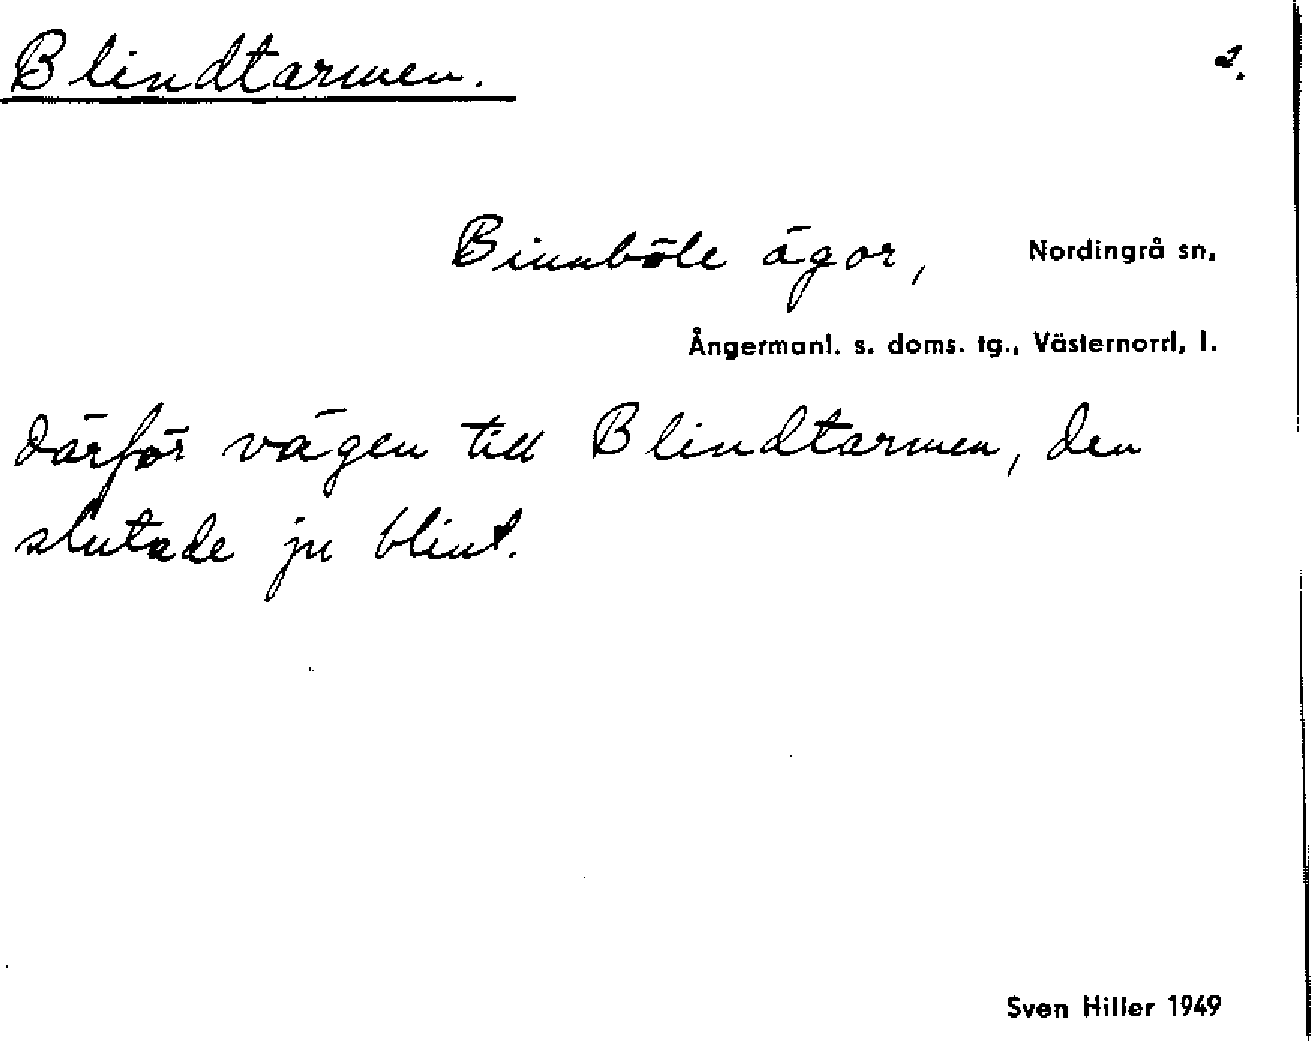 Blindtarmen. 2.
Binnböle ägor, Nordingrå sn.
Ångermanl. s. doms. tg., Västernorrl. l.
därför vägen till Blindtarmen, den
slutade ju blint.
Sven Hiller 1949